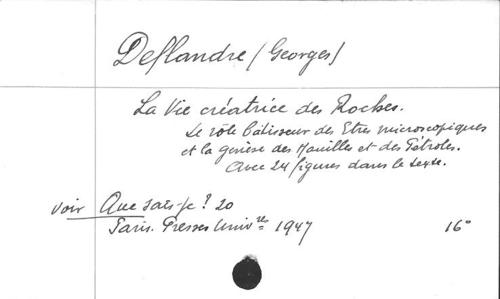 Deflandre (Georges)
La Vie créatrice des Roches.
Le rôle bâtisseur des Etres microscopiques
et la genèse des Houilles et des Pétroles.
Avec 24 figures dans le texte.
voir Que sais-je? 20
Paris. Presses Univ.res 1947 16°